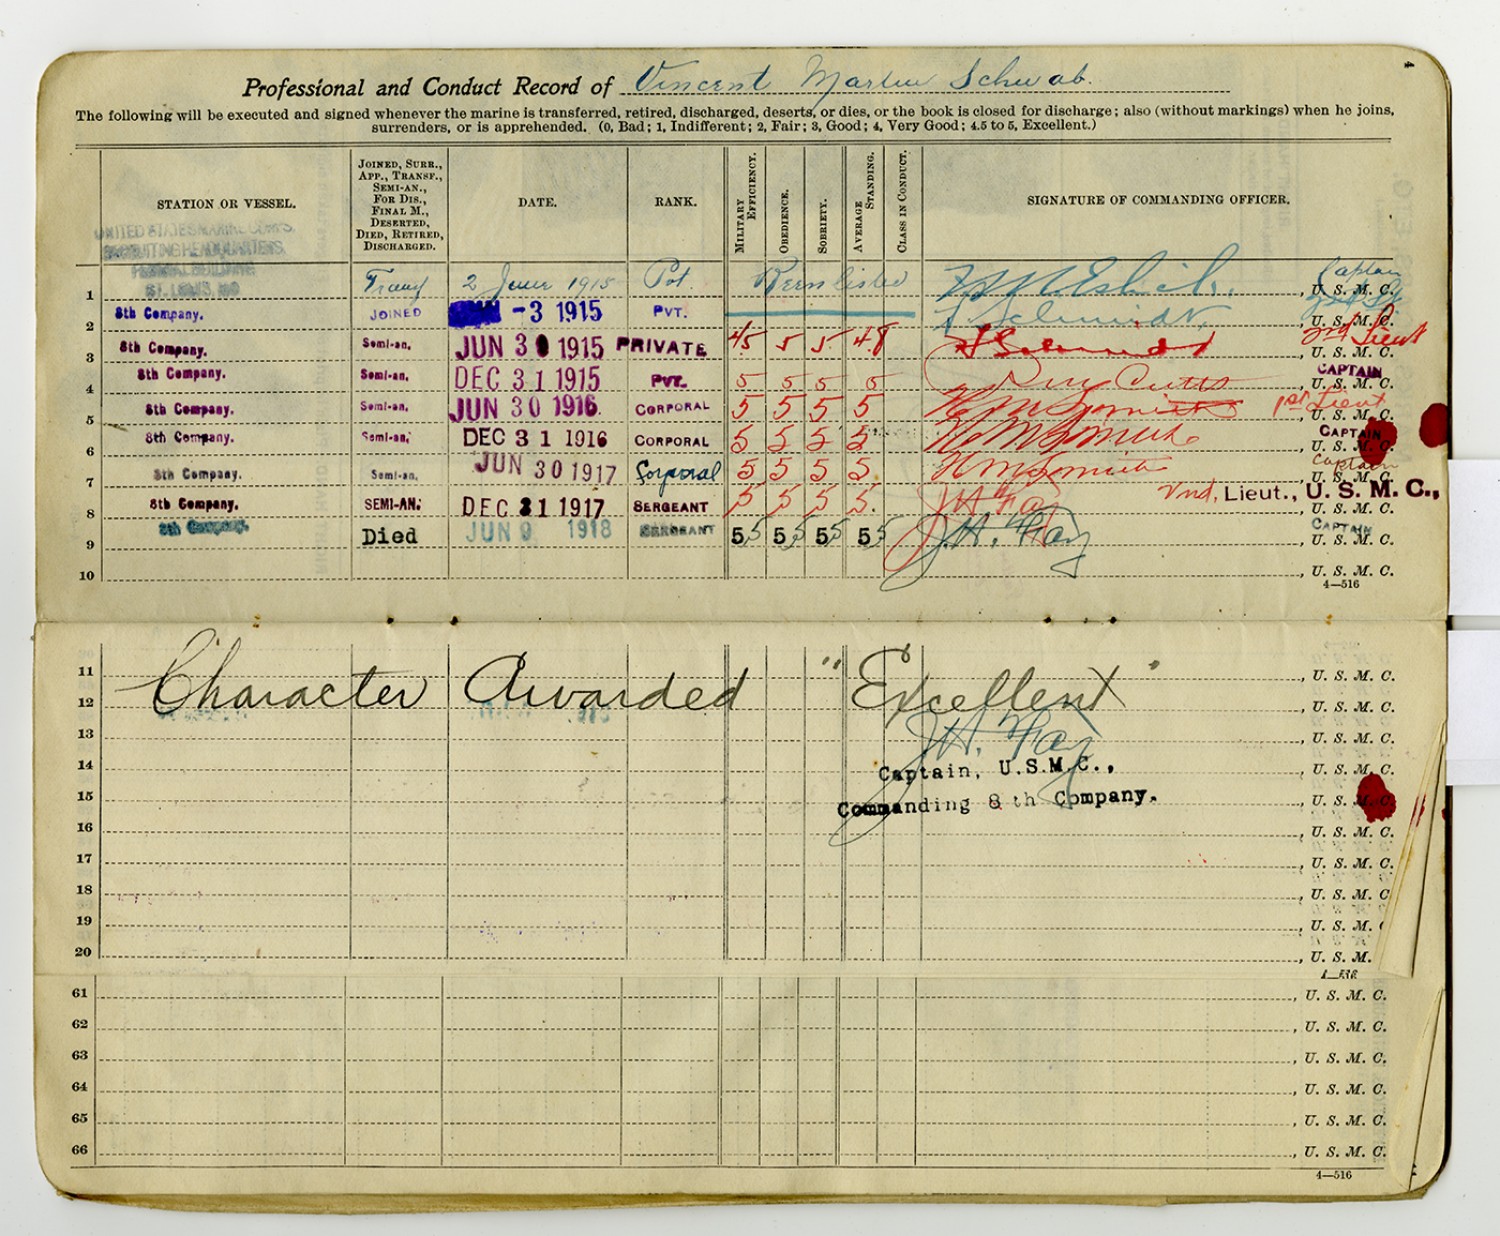 Professional and Conduct Record of Vincent Martin Schwab.
The following will be executed and signed whenever the marine is transferred, retired, discharged, deserts, or dies, or the book is closed for discharge; also (without markings) when he joins,
surrenders, or is apprehended. (0, Bad; 1, Indifferent; 2, Fair; 3, Good; 4, Very Good; 4.5 to 5, Excellent.)
STATION OR VESSEL.
JOINED, SURR.,
APP., TRANSF.,
SEMI-AN.,
FOR DIS.,
FINAL M.,
DESERTED,
DIED, RETIRED,
DISCHARGED.
DATE.
RANK.
MILITARY EFFICIENCY.
OBEDIENCE.
SOBRIETY.
AVERAGE STANDING.
CLASS IN CONDUCT.
SIGNATURE OF COMMANDING OFFICER.
UNITED STATES MARINE CORPS,
RECRUITING HEADQUARTERS,
FEDERAL BUILDING
ST. LOUIS, MO
1 2 June 1915 Pvt. Reenlisted Captain , U. S. M. C.
2 8th Company. JOINED -3 1915 PVT. Schmidt , U. S. M. C.
3 8th Company. Semi-an. JUN 30 1915 PRIVATE 4.5 5 5 4.8 Schmidt 2nd Lieut , U. S. M. C.
4 8th Company. Semi-an. DEC 31 1915 PVT. 5 5 5 5 Cutts CAPTAIN , U. S. M. C.
5 8th Company. Semi-an. JUN 30 1916 CORPORAL 5 5 5 5 1st Lieut , U. S. M. C.
6 8th Company. Semi-an. DEC 31 1916 CORPORAL 5 5 5 5 CAPTAIN , U. S. M. C.
7 8th Company. Semi-an. JUN 30 1917 Corporal 5 5 5 5. Captain , U. S. M. C.
8 8th Company. SEMI-AN. DEC 31 1917 SERGEANT 5 5 5 5. J. H. Fay 2nd, Lieut., U. S. M. C.,
, U. S. M. C.
9 8th Company. Died JUN 9 1918 SERGEANT 5 5 5 5 J. H. Fay CAPTAIN , U. S. M. C.
10 , U. S. M. C.
4—516
11 , U. S. M. C.
12 Character Awarded "Excellent" , U. S. M. C.
13 J. H. Fay , U. S. M. C.
14 Captain, U.S.M.C., , U. S. M. C.
15 Commanding 8 th Company. , U. S. M. C.
16 , U. S. M. C.
17 , U. S. M. C.
18 , U. S. M. C
19 , U. S. M.
20 , U. S. M.
61 , U. S. M. C.
62 , U. S. M. C.
63 , U. S. M. C.
64 , U. S. M. C.
65 , U. S. M. C.
66 , U. S. M. C.
4—516